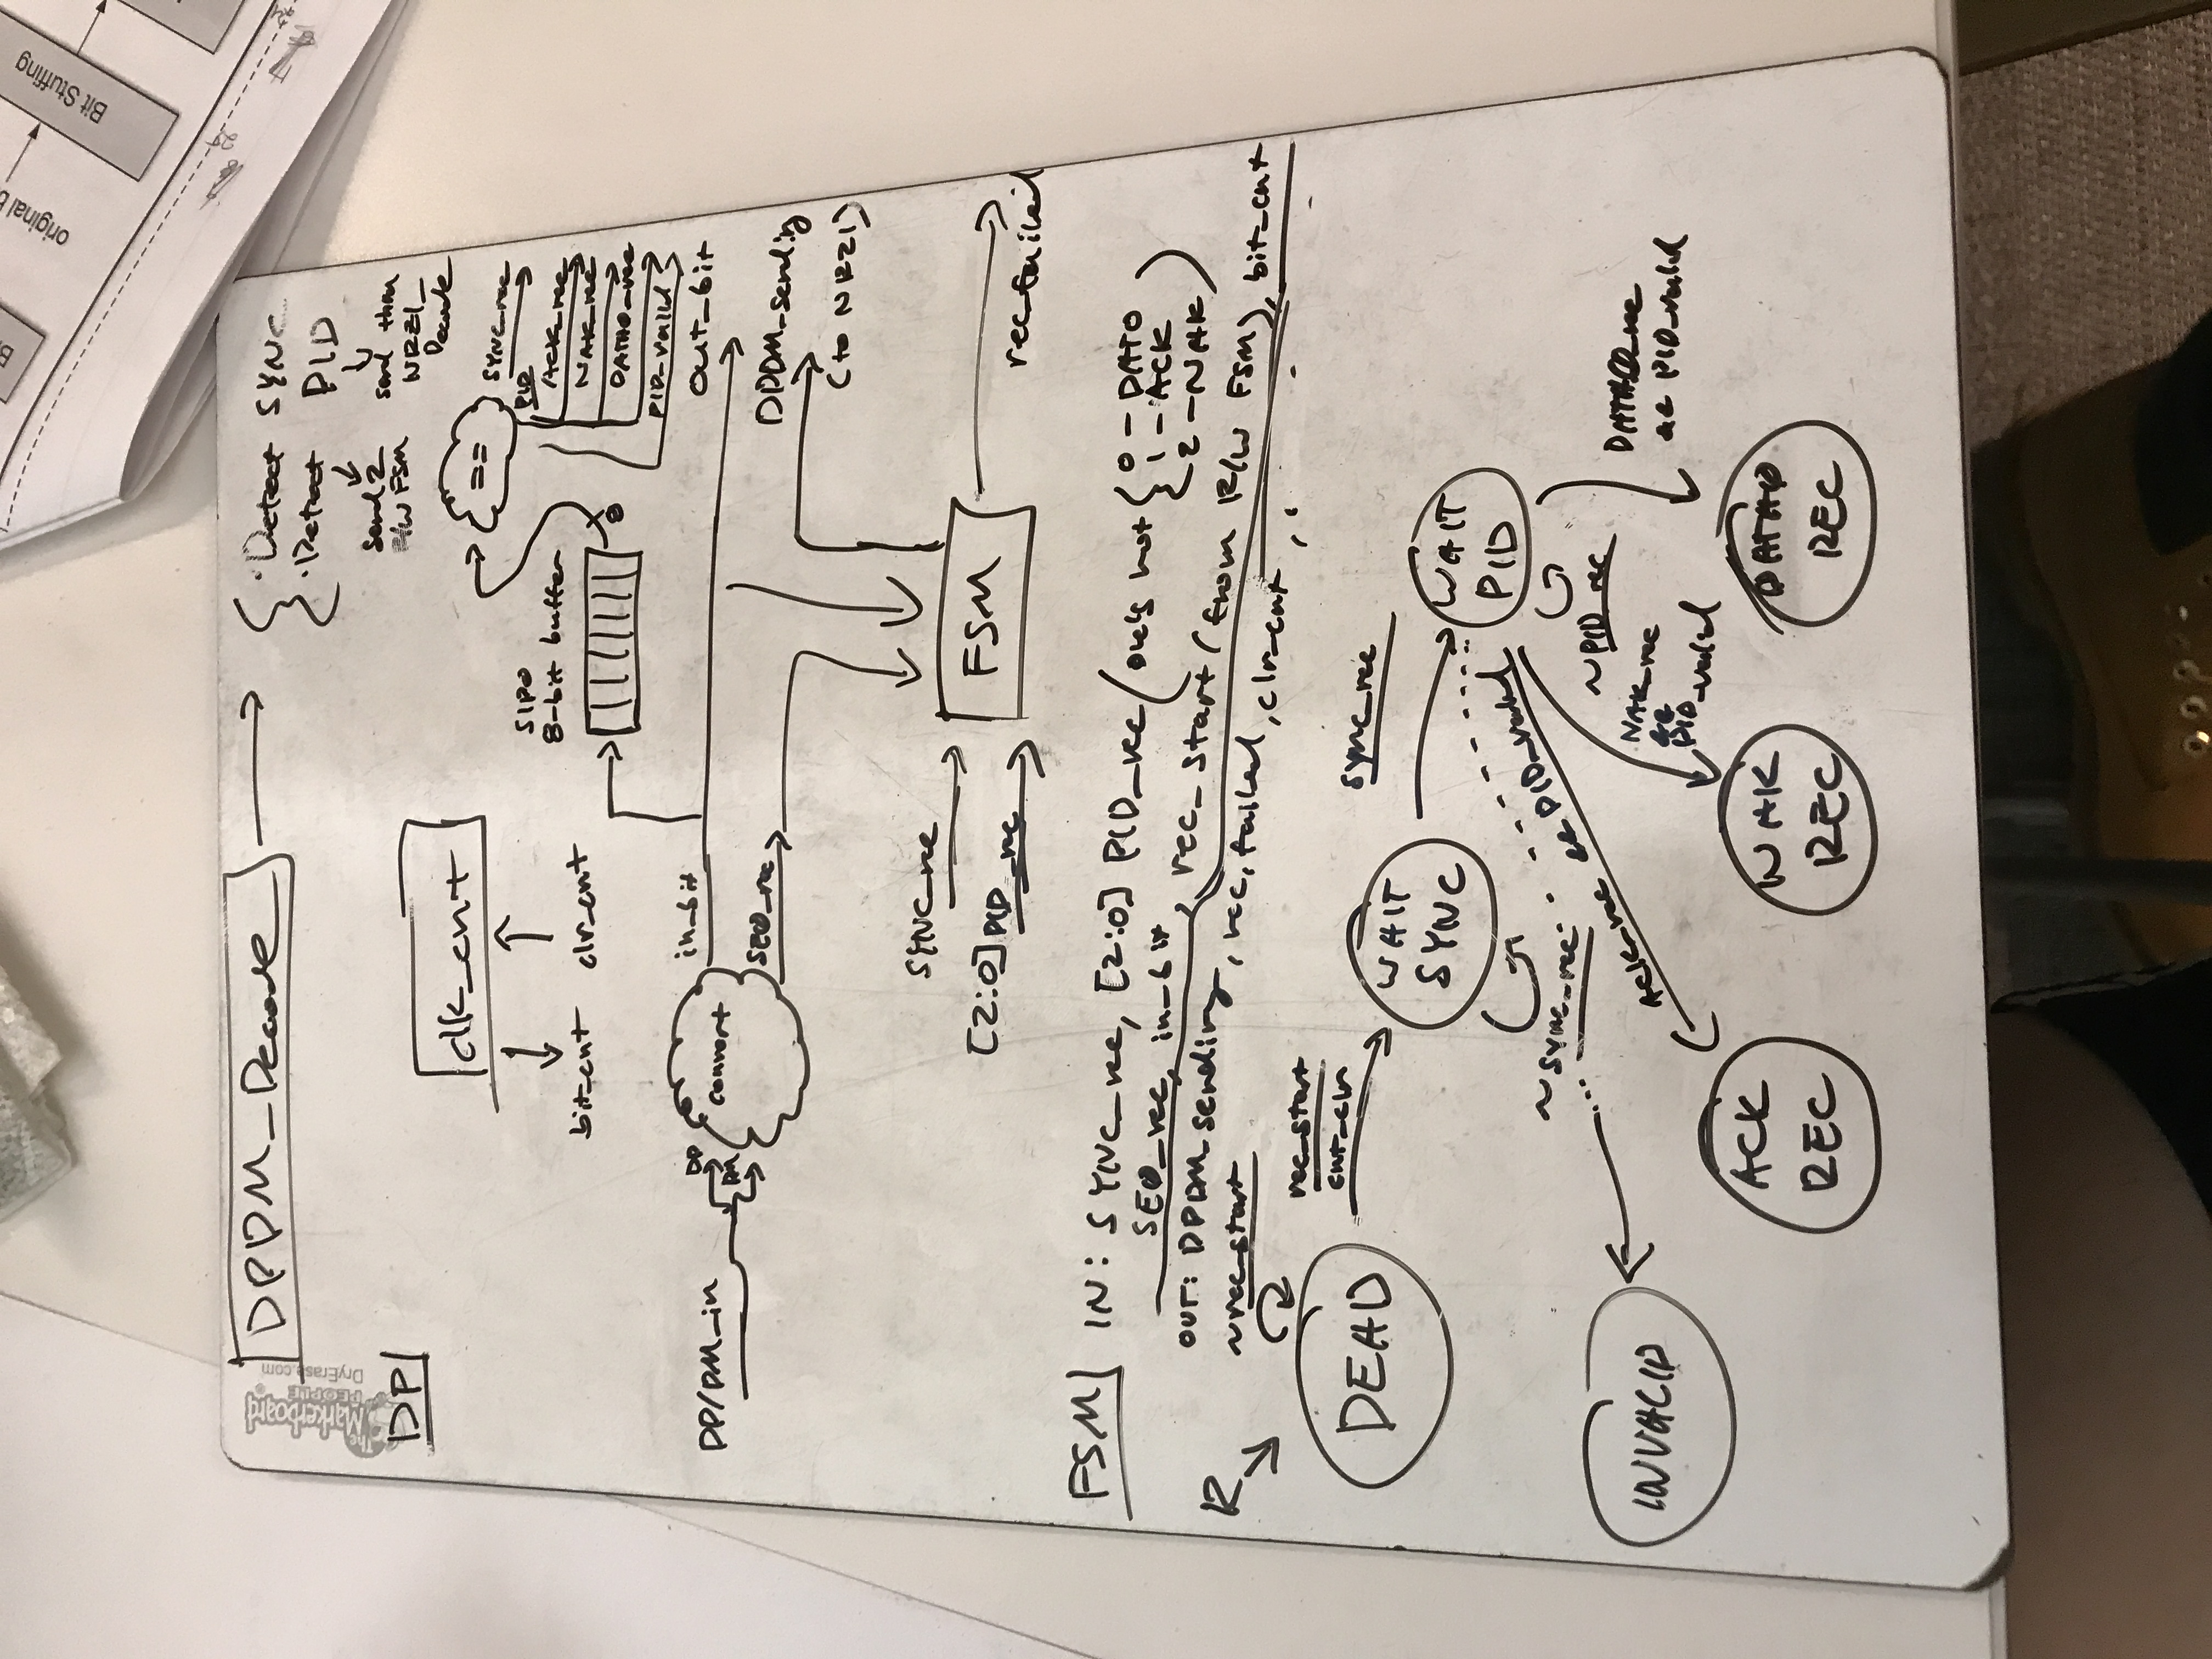 original b
Bit Stuffing
The
Markerboard
PEOPLE
DryErase.com
DPDM_Decode
· Detect SYNC
· Detect PID
send 2
R/W FSM
send thru
NRZI_
Decode
DP
clk_cnt
bit_cnt
clr_cnt
SIPO
8-bit buffer
8
==
SYNC_rec
PID
ACK_rec
NAK_rec
DATA0_rec
PID_valid
DP/DM_in
DP
DM
convert
in_bit
SE0_rec
out_bit
DPDM_sending
(to NRZI)
SYNC_rec
[2:0] PID_rec
FSM
rec_failed
FSM
IN: SYNC_rec, [2:0] PID_rec (one's hot { 0 - DAT0
1 - ACK
2 - NAK )
SE0_rec, in_bit, rec_start (from R/W FSM), bit_cnt
OUT: DPDM_sending, rec_failed, clr_cnt,
R
~rec_start
DEAD
rec_start
cnt_clr
WAIT
SYNC
sync_rec
WAIT
PID
~sync_rec
ACK_rec && PID_valid
~PID_rec
NAK_rec
&&
PID_valid
DATA0_rec
&& PID_valid
INVALID
ACK
REC
NAK
REC
DATA0
REC